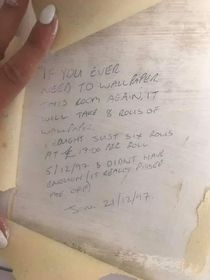 IF YOU EVER
NEED TO WALLPAPER
THIS ROOM AGAIN IT
WILL TAKE 8 ROLLS OF
WALLPAPER
I BOUGHT JUST SIX ROLLS
AT £ 17.00 PER ROLL
5/12/97 & DIDNT HAVE
ENOUGH (IT REALLY PISSED
ME OFF)
21/12/97